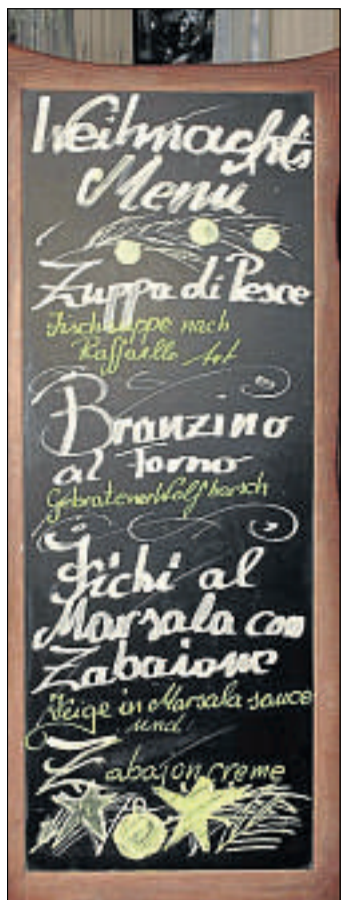 Weihnachts
Menü
Zuppa di Pesce
Fischsuppe nach
Raffaello Art
Branzino
al forno
Gebratener Wolfbarsch
Fichi al
Marsala con
Zabaione
Feige in Marsala sauce
und
Zabaioncreme